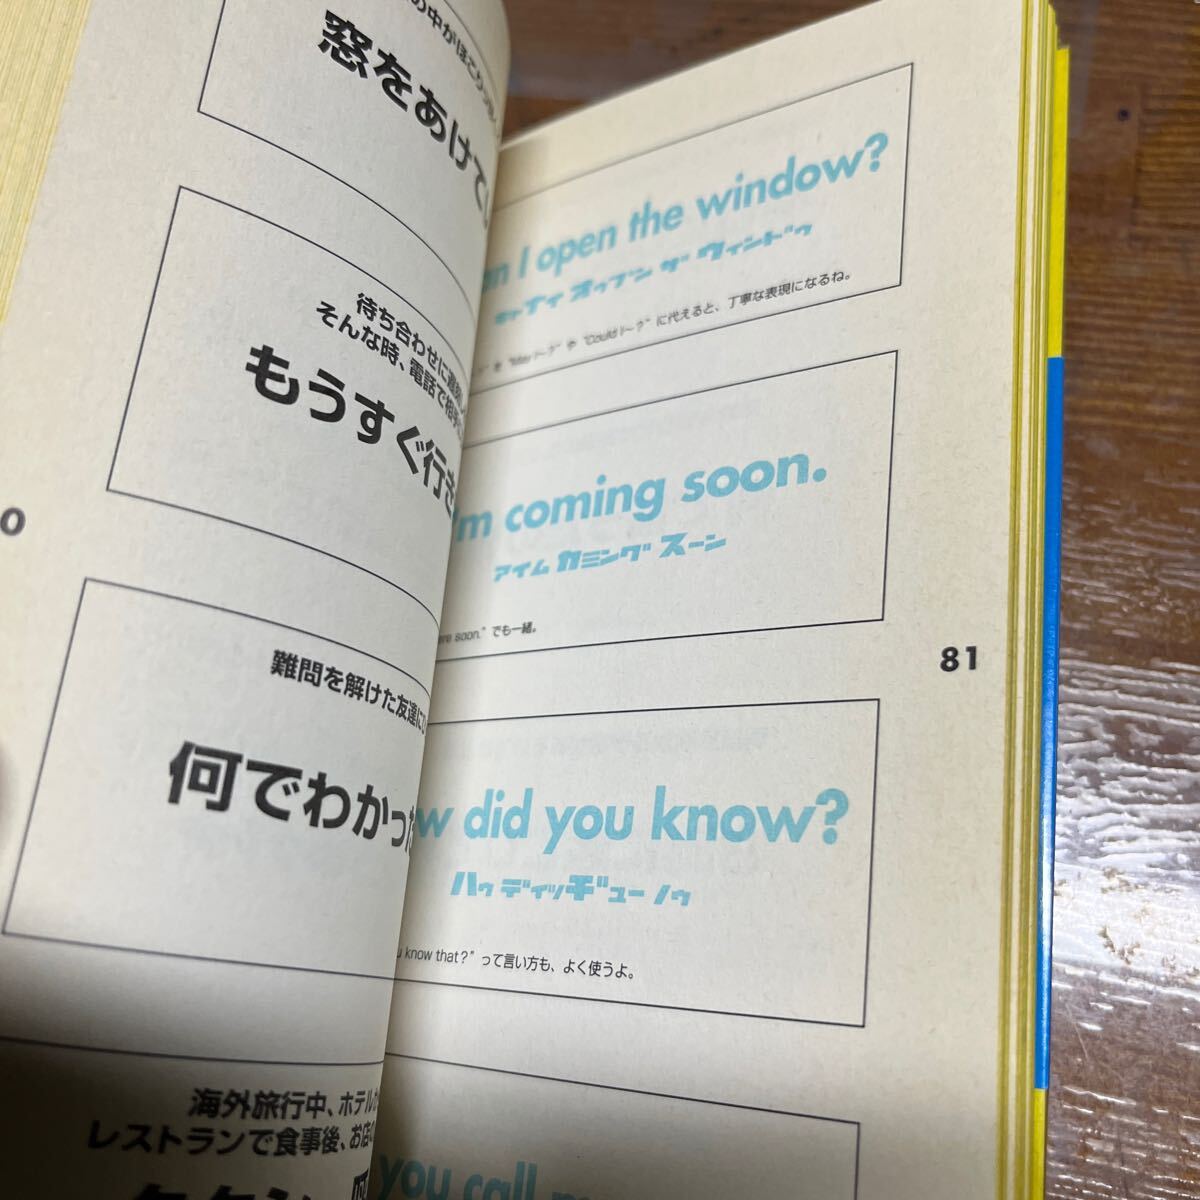 の中がほこりっぽい
窓をあけて
待ち合わせに遅刻
そんな時、電話で相手
もうすぐ行き
0
難問を解けた友達に
何でわかった
海外旅行中、ホテル
レストランで食事後、お店
an I open the window?
キャナイ オゥプン ザ ウィンドゥ
を "May I～?" や "Could I～?" に代えると、丁寧な表現になるね。
'm coming soon.
アイム カミング スーン
ere soon." でも一緒。
81
ow did you know?
ハゥ ディッヂュー ノゥ
u know that?" って言い方も、よく使うよ。
you call m